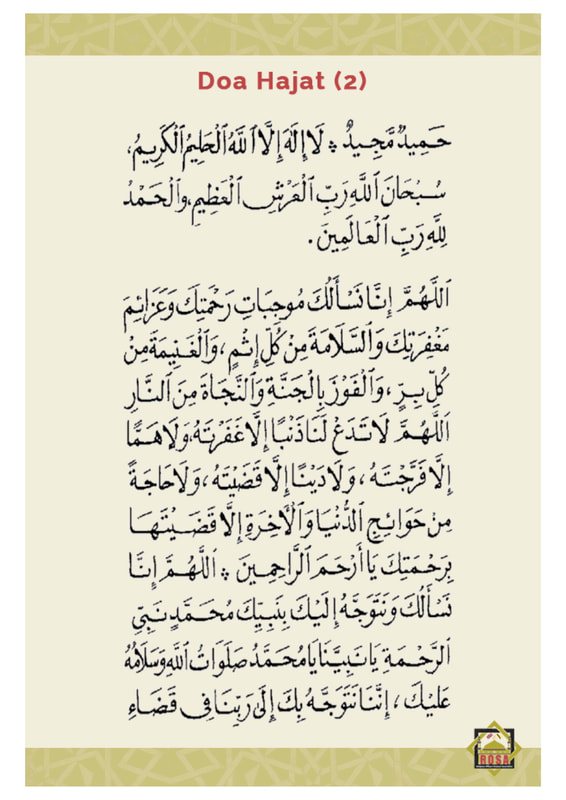 Doa Hajat (2)
حَمِيدٌ مَّجِيدٌ * لَا إِلَهَ إِلَّا اللَّهُ الْحَلِيمُ الْكَرِيمُ،
سُبْحَانَ اللَّهِ رَبِّ الْعَرْشِ الْعَظِيمِ، وَالْحَمْدُ
لِلَّهِ رَبِّ الْعَالَمِينَ.
اللَّهُمَّ إِنَّا نَسْأَلُكَ مُوجِبَاتِ رَحْمَتِكَ وَعَزَائِمَ
مَغْفِرَتِكَ وَالسَّلَامَةَ مِنْ كُلِّ إِثْمٍ، وَالْغَنِيمَةَ مِنْ
كُلِّ بِرٍّ، وَالْفَوْزَ بِالْجَنَّةِ وَالنَّجَاةَ مِنَ النَّارِ
اللَّهُمَّ لَا تَدَعْ لَنَا ذَنْبًا إِلَّا غَفَرْتَهُ، وَلَا هَمًّا
إِلَّا فَرَّجْتَهُ، وَلَا دَيْنًا إِلَّا قَضَيْتَهُ، وَلَا حَاجَةً
مِنْ حَوَائِجِ الدُّنْيَا وَالْآخِرَةِ إِلَّا قَضَيْتَهَا
بِرَحْمَتِكَ يَا أَرْحَمَ الرَّاحِمِينَ * اللَّهُمَّ إِنَّا
نَسْأَلُكَ وَنَتَوَجَّهُ إِلَيْكَ بِنَبِيِّكَ مُحَمَّدٍ نَبِيِّ
الرَّحْمَةِ يَا نَبِيَّنَا يَا مُحَمَّدُ صَلَوَاتُ اللَّهِ وَسَلَامُهُ
عَلَيْكَ، إِنَّنَا نَتَوَجَّهُ بِكَ إِلَى رَبِّنَا فِي قَضَاءِ
ROSA